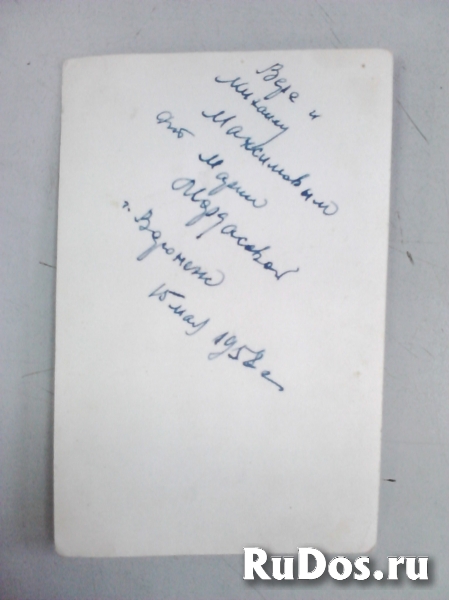 Вере и
Михаилу
Максимовым
от Марии
Мордасовой
г. Воронеж
15 мая 1958 г.
RuDos.ru